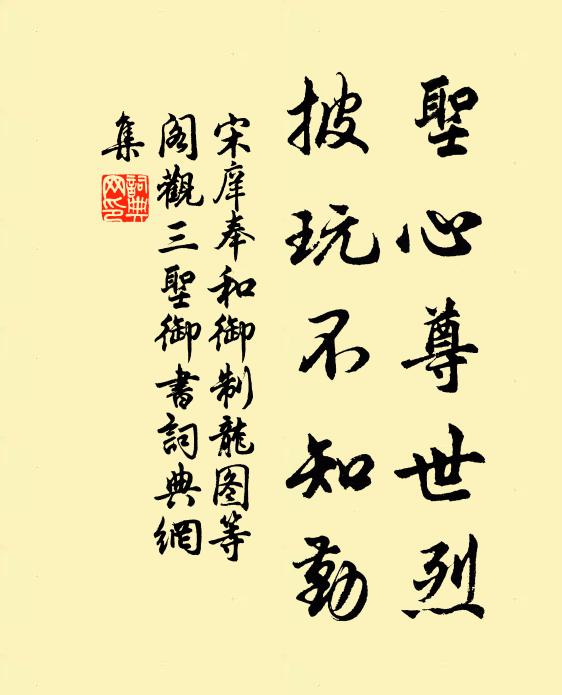 聖心尊世烈
披玩不知勤
宋庠奉和御制龍图等
阁觀三聖御書詞典網
集
詞典
网印